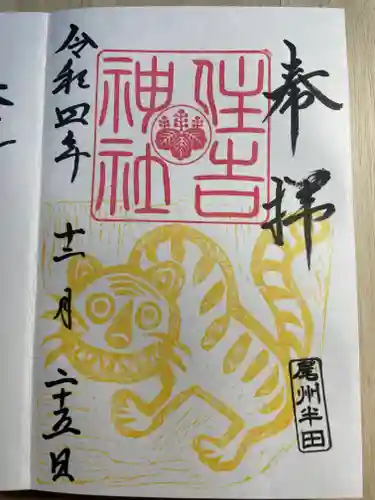 奉拝
住吉
神社
令和四年
十一月
二十五日
尾州半田